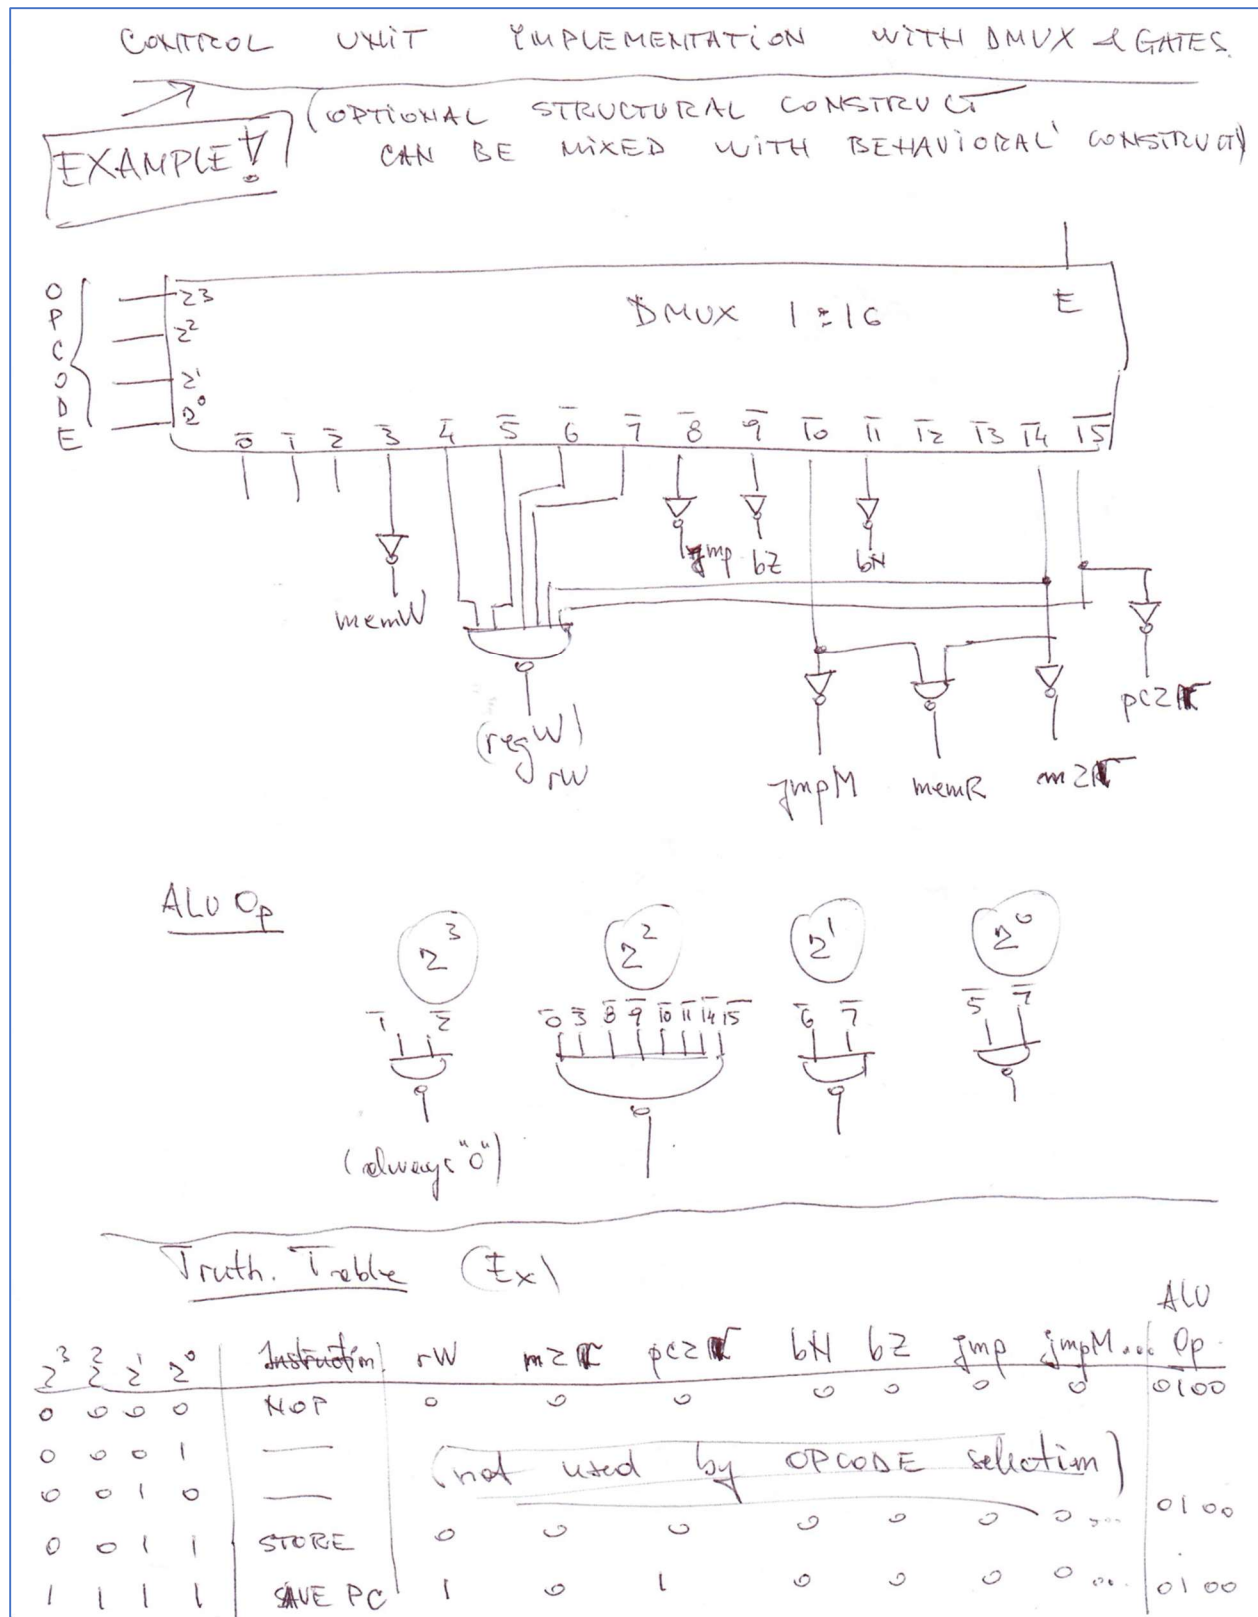 CONTROL UNIT IMPLEMENTATION WITH DMUX & GATES
EXAMPLE!
(OPTIONAL STRUCTURAL CONSTRUCT
CAN BE MIXED WITH BEHAVIORAL CONSTRUCT)
OPCODE
2³
2²
2¹
2⁰
DMUX 1:16
E
0̅ 1̅ 2̅ 3̅ 4̅ 5̅ 6̅ 7̅ 8̅ 9̅ 1̅0̅ 1̅1̅ 1̅2̅ 1̅3̅ 1̅4̅ 1̅5̅
jmp bZ bN
memW
pc2r
(regW)
rW
jmpM memR m2r
ALU Op
2³ 2² 2¹ 2⁰
1̅ 2̅ 0̅ 3̅ 8̅ 9̅ 1̅0̅ 1̅1̅ 1̅4̅ 1̅5̅ 6̅ 7̅ 5̅ 7̅
(always "0")
Truth. Table (Ex)
2³ 2² 2¹ 2⁰ Instruction rW m2r pc2r bN bZ jmp jmpM... ALU Op.
0 0 0 0 NOP 0 0 0 0 0 0 0 0100
0 0 0 1 —
(not used by OPCODE selection)
0 0 1 0 —
0 0 1 1 STORE 0 0 0 0 0 0 0 ... 0100
1 1 1 1 SAVE PC 1 0 1 0 0 0 0 ... 0100